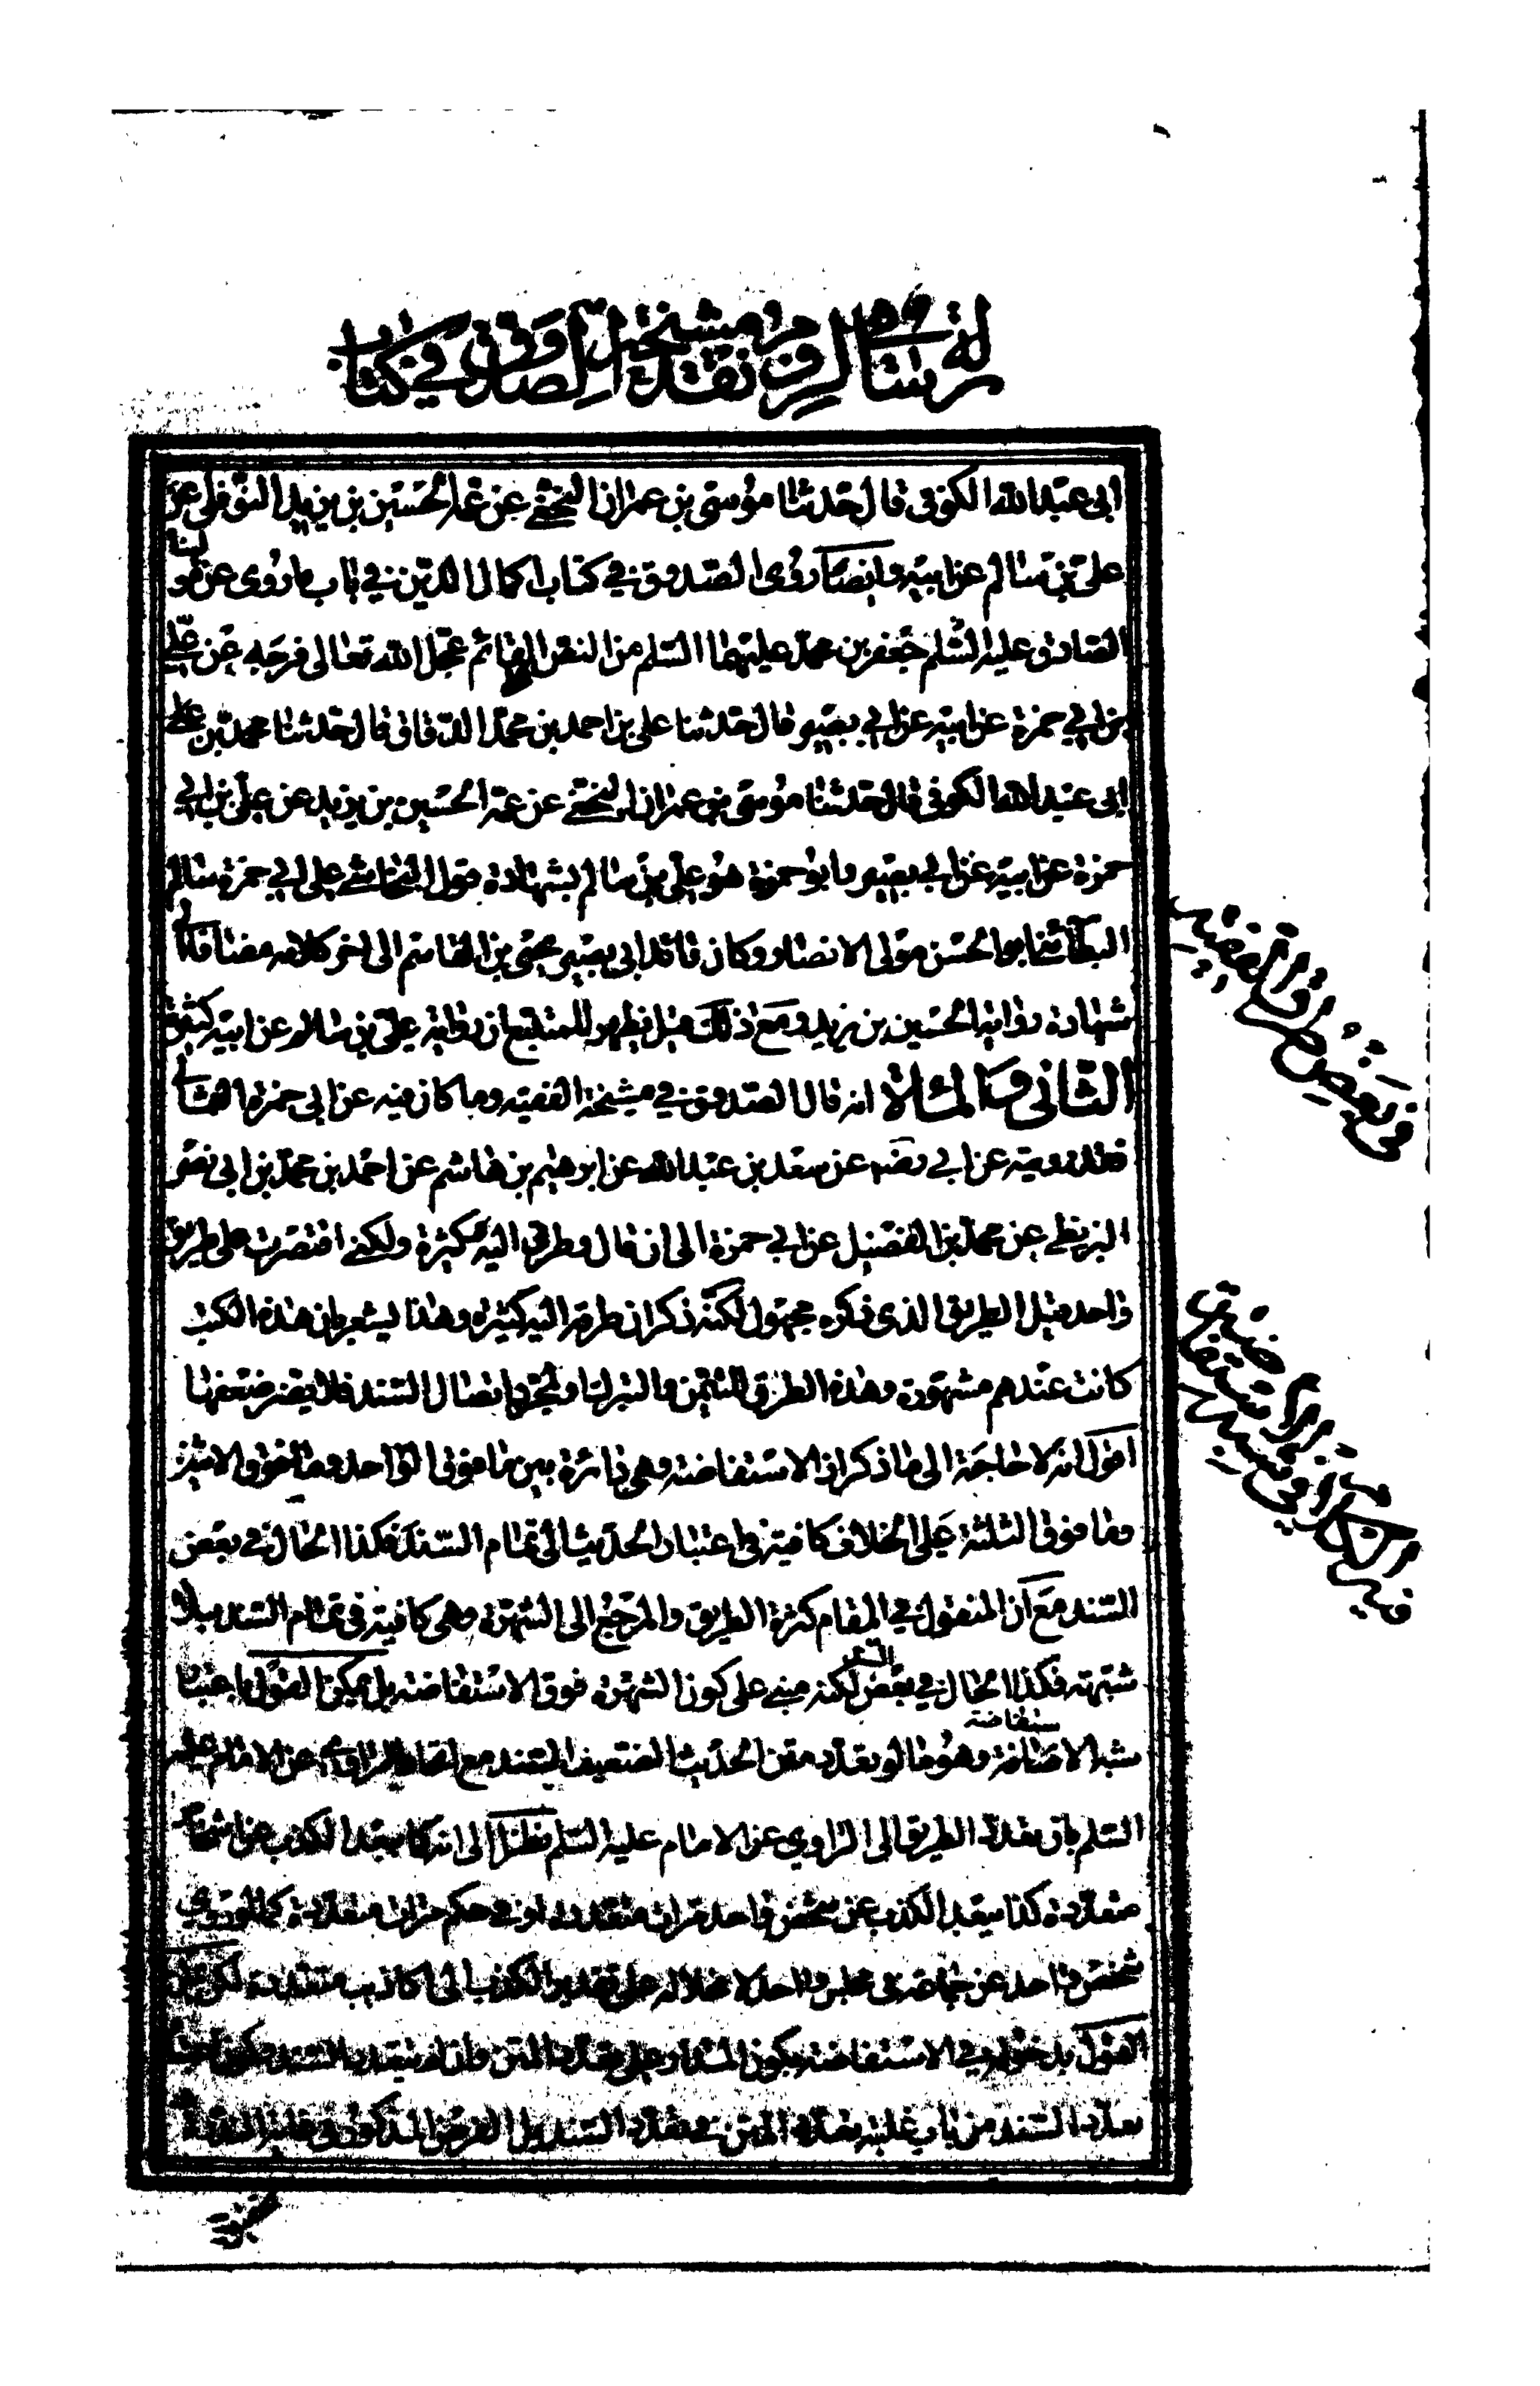 رسالة في نقد مشيخة الصدوق في كتاب
ابى عبد الله الكوفى قال حدثنا موسى بن عمران النخعى عن عمه الحسين بن يزيد النوفلى عن
على بن سالم عن ابيه وايضا روى الصدوق فى كتاب اكمال الدين فى باب ما روى عن مولانا
الصادق عليه السلم جعفر بن محمد عليهما السلم من النص القائم عجل الله تعالى فرجه عن على
بن ابى حمزة عن ابيه عن ابى بصير قال حدثنا على بن احمد بن محمد الدقاق قال حدثنا محمد بن
ابى عبد الله الكوفى قال حدثنا موسى بن عمران النخعى عن عمه الحسين بن يزيد عن على بن ابى
حمزة عن ابيه عن ابى بصير وابو حمزة هو على بن سالم بشهادة قول النجاشى على ابى حمزة سالم
البطائنى ابو الحسن مولى الانصار وكان قائد ابى بصير يحيى بن القاسم الى اخر كلامه مضافا الى
شهادة رواية الحسين بن يزيد ومع ذلك قيل يظهر للمتتبع ان رواية على بن سالم عن ابيه كثيرة
الثانى والمائة انه قال الصدوق فى مشيخة الفقيه وما كان فيه عن ابى حمزة الثمالى
فقد رويته عن ابى رضه عن سعد بن عبد الله عن ابرهيم بن هاشم عن احمد بن محمد بن ابى نصر
البزنطى عن محمد بن الفضيل عن ابى حمزة الى ان قال وطرقى اليه كثيرة ولكنى اقتصرت على طريق
واحد قيل الطريق الذى ذكره مجهول لكنه ذكر ان طرقه اليه كثيرة وهذا يشعر بان هذه الكتب
كانت عندهم مشهورة وهذه الطرق للتيمن والتبرك او لمجرد اتصال السند فلا يضر ضعفها
اقول انه لا حاجة الى ما ذكر اذ الاستفاضة وهى دائرة بين ما فوق الواحد وما فوق الاثنين
وما فوق الثلثة على الخلاف كافية فى اعتبار الحديث فى تمام السند فكذا الحال فى بعض
السند مع ان المنقول فى المقام كثرة الطريق والمرجع الى الشهرة وهى كافية فى تمام السند بلا
شبهة فكذا الحال فى بعض السند لكنه مبنى على كون الشهرة فوق الاستفاضة بل يمكن القول باعتبار
شبه الاستفاضة وهو ما لو تعدد متن الحديث الضعيف السند مع اتحاد الراوى عن الامام عليه
السلم بان تعدد الطريق الى الراوي عن الامام عليه السلم نظرا الى انه كما يبعد الكذب عن اشخاص
متعددة كذا يبعد الكذب عن شخص واحد مرات متعددة او فى حكم مرات متعددة كما لو روى
شخص واحد عن جماعة فى مجلس واحد لانحلاله على تقدير الكذب الى اكاذيب متعددة لكن يمكن
القول بدخوله فى الاستفاضة بكون المدار على تعدد المتن وان لم يتعدد السند
تعدد السند من باب غلبة تعدد المتن فى تعدد السند بل الغرض المذكور